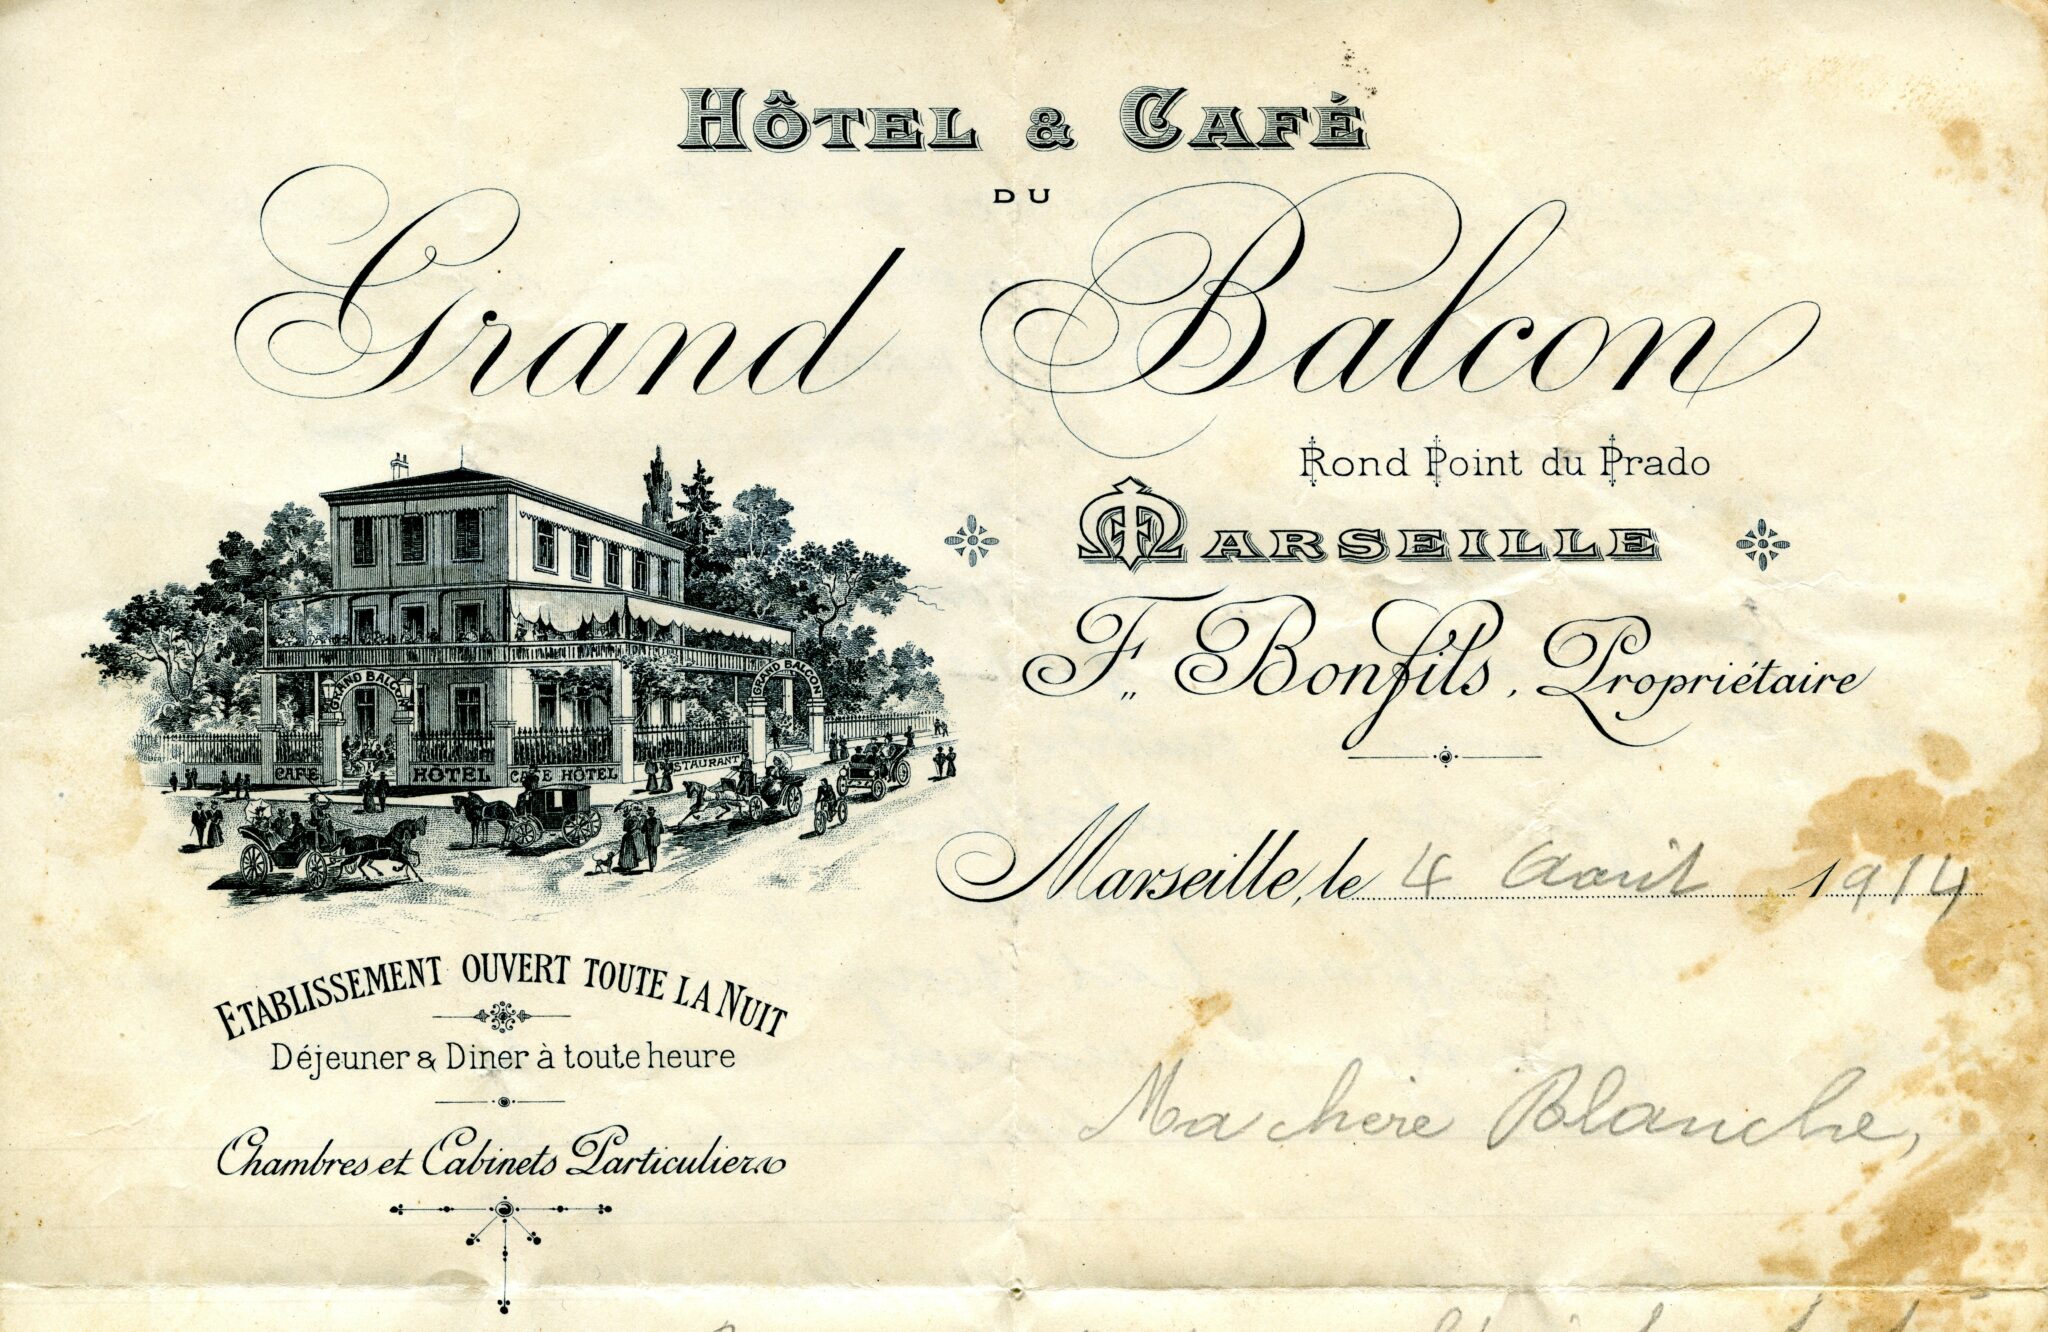 HÔTEL & CAFÉ
DU
Grand Balcon
Rond Point du Prado
MARSEILLE
F. Bonfils, Propriétaire
GRAND BALCON
GRAND BALCON
CAFÉ
HÔTEL
CAFE HÔTEL
STAURANT
Marseille, le 4 Août 1914
ETABLISSEMENT OUVERT TOUTE LA NUIT
Déjeuner & Diner à toute heure
Chambres et Cabinets Particuliers
Ma chère Blanche,